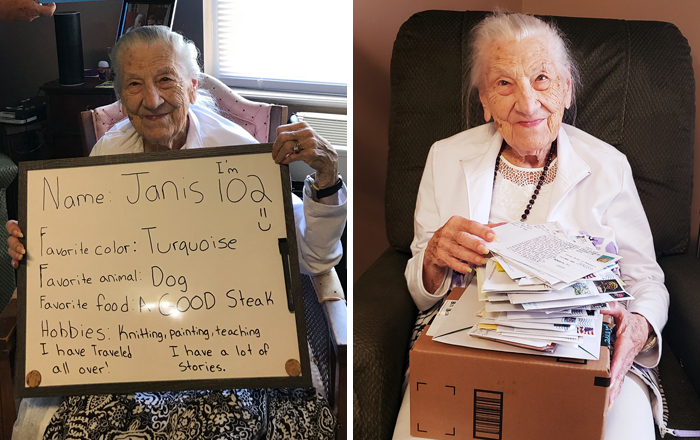 I'm
Name: Janis 102
Favorite color: Turquoise
Favorite animal: Dog
Favorite food: A GOOD Steak
Hobbies: Knitting, painting, teaching
I have Traveled all over!
I have a lot of stories.